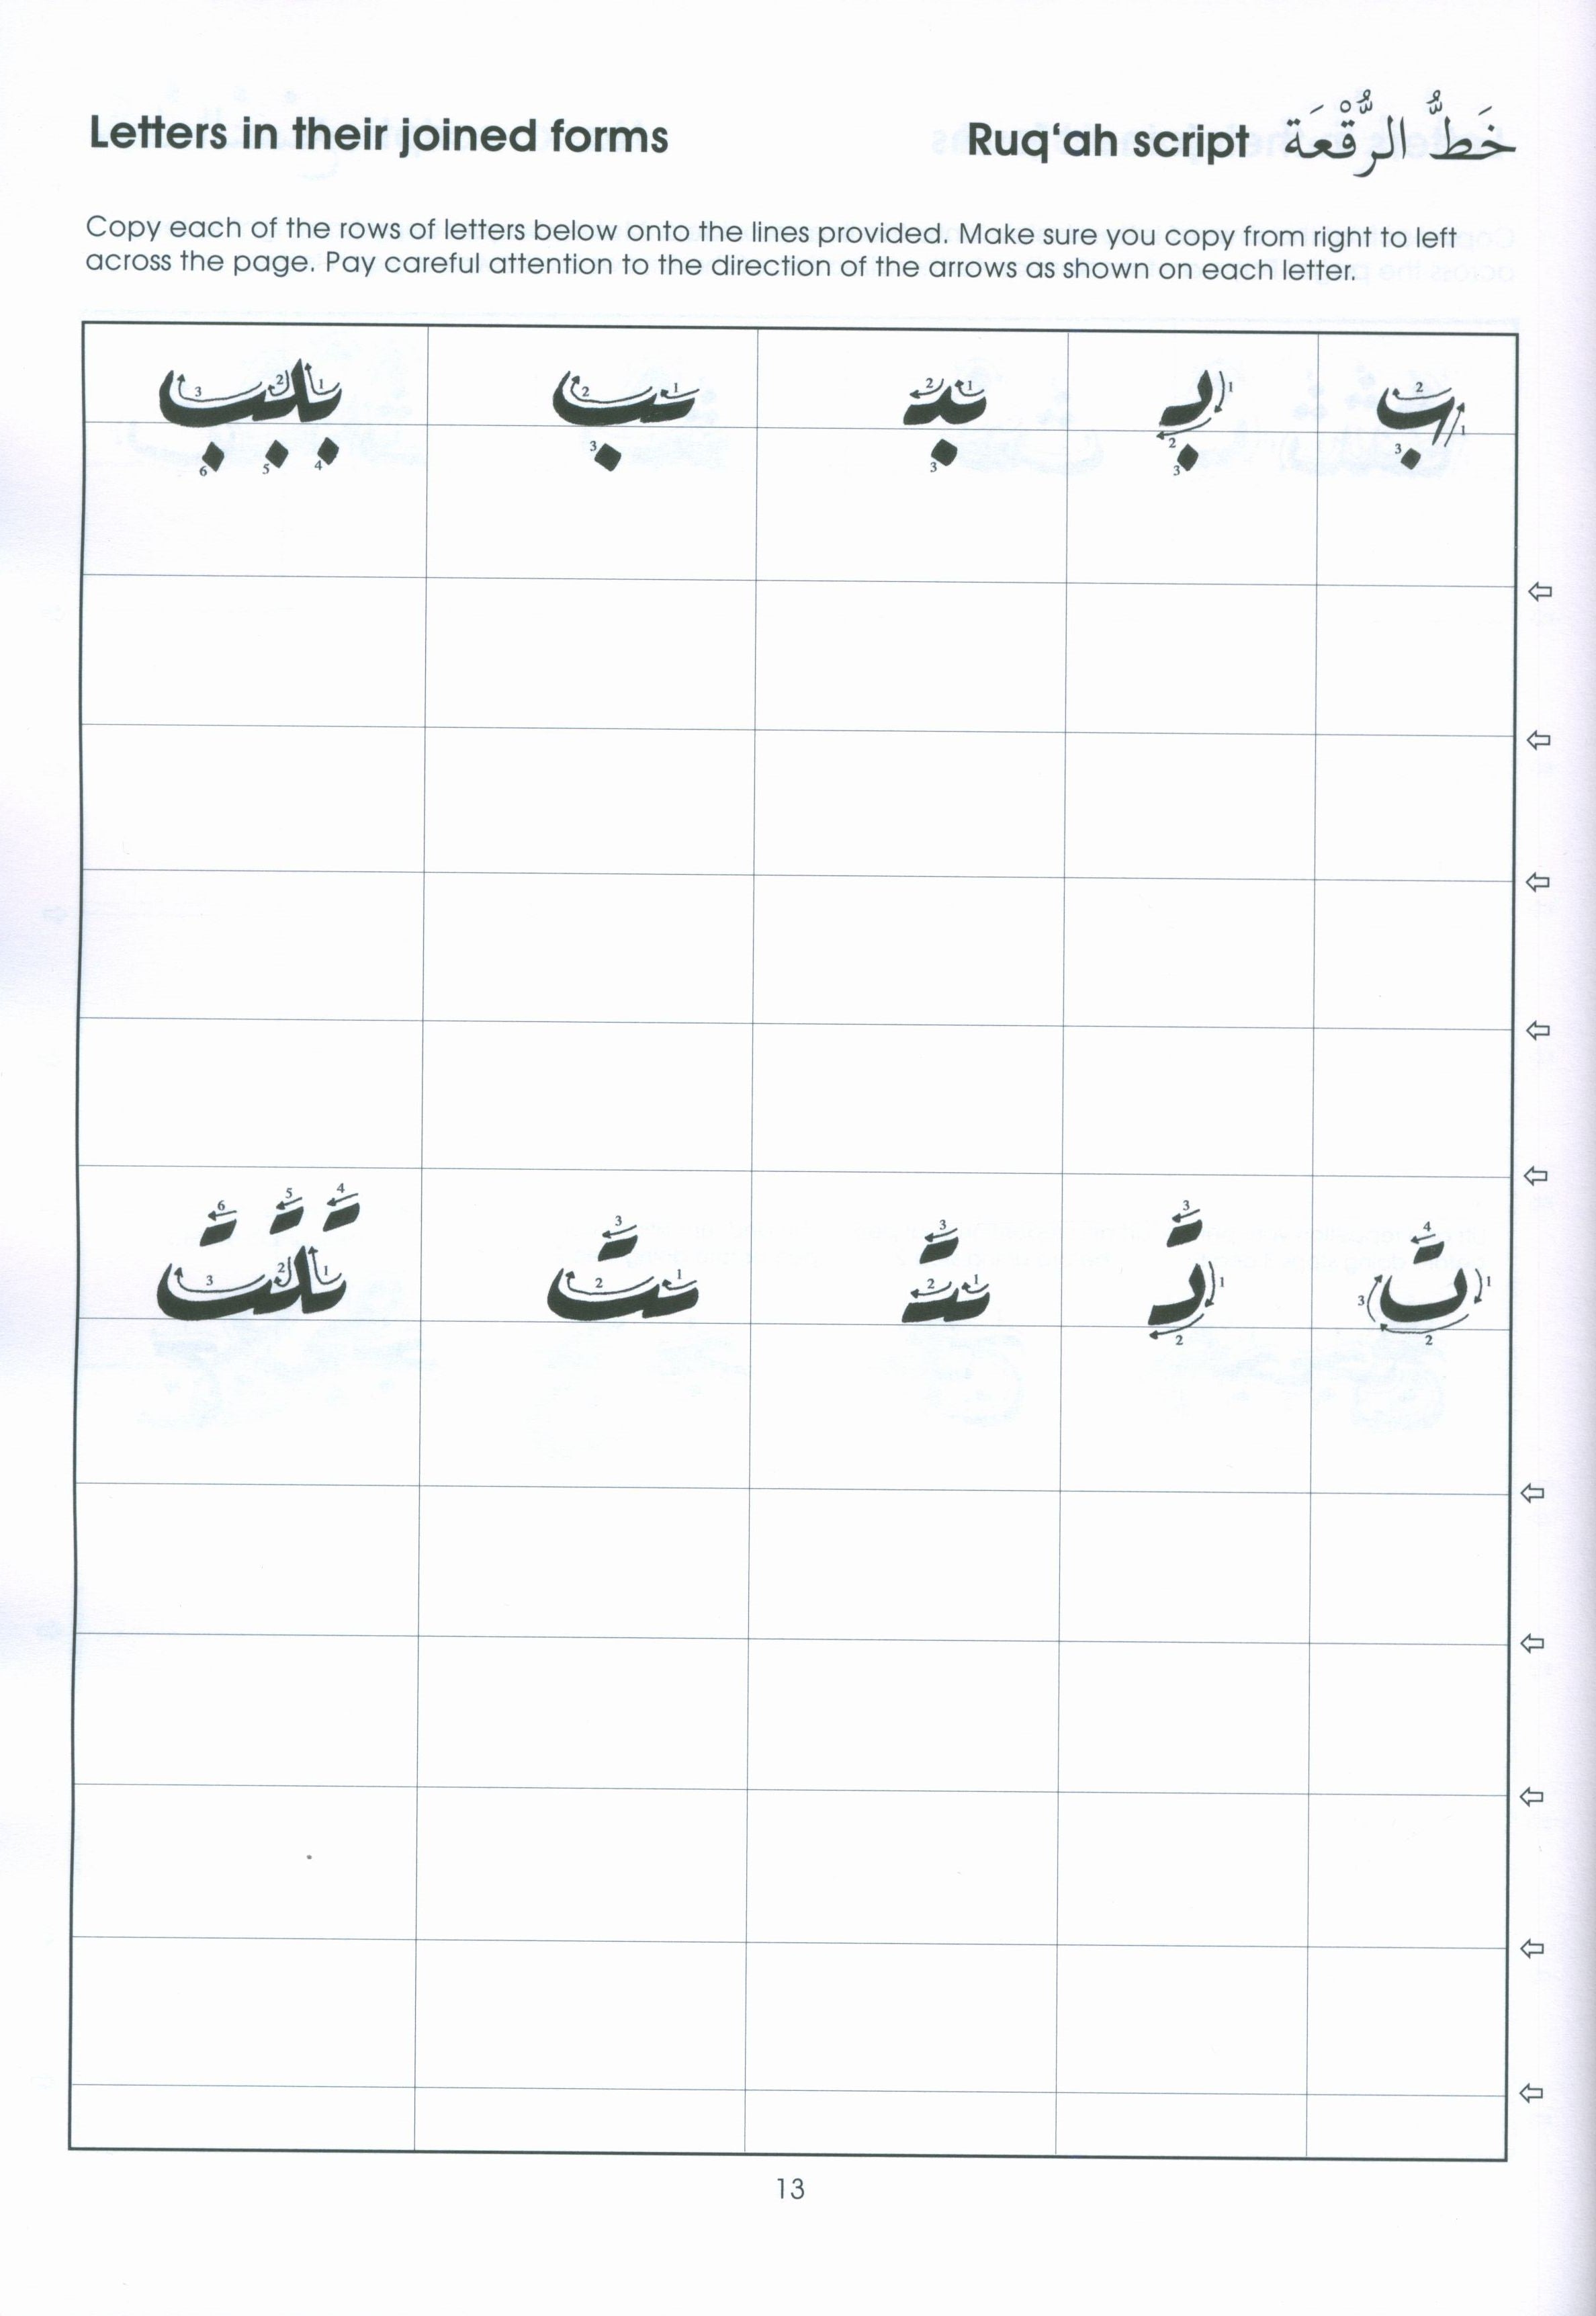 Letters in their joined forms
Ruq‘ah script خَطُّ الرُّقْعَة
Copy each of the rows of letters below onto the lines provided. Make sure you copy from right to left
across the page. Pay careful attention to the direction of the arrows as shown on each letter.
ب بـ ـبـ ـب ببب
ت تـ ـتـ ـت تتت
13